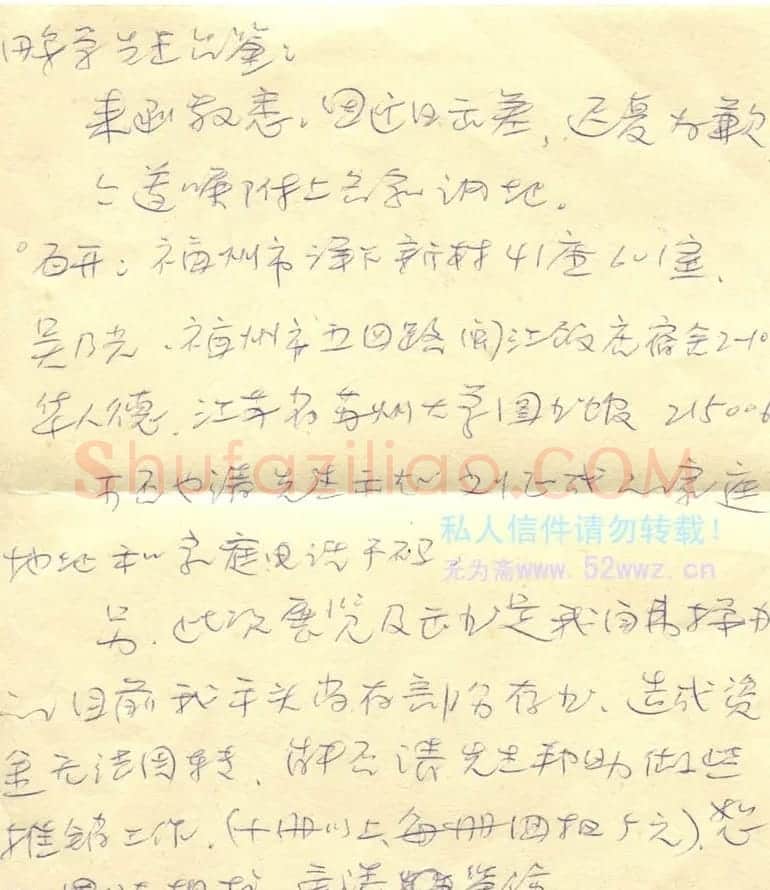 先生台鉴:
来函敬悉,因近日出差,迟复为歉
今遵嘱附上各家通地。
石开:福州市泽下新村41座601室,
吴乃光、福州市五四路闽江饭店宿舍2-10
华人德、江苏省苏州大学图书馆 215006
可否也请先生示知 的家庭
地址和家庭电话号码
另、此次展览及出书是我自费操办
的目前我手头尚存部分存书、造成资
金无法周转、能否请先生帮助做些
推销工作.(十册以上每册回扣5元)、
Shufaziliao.COM
私人信件请勿转载!
无为斋www.52wwz.cn